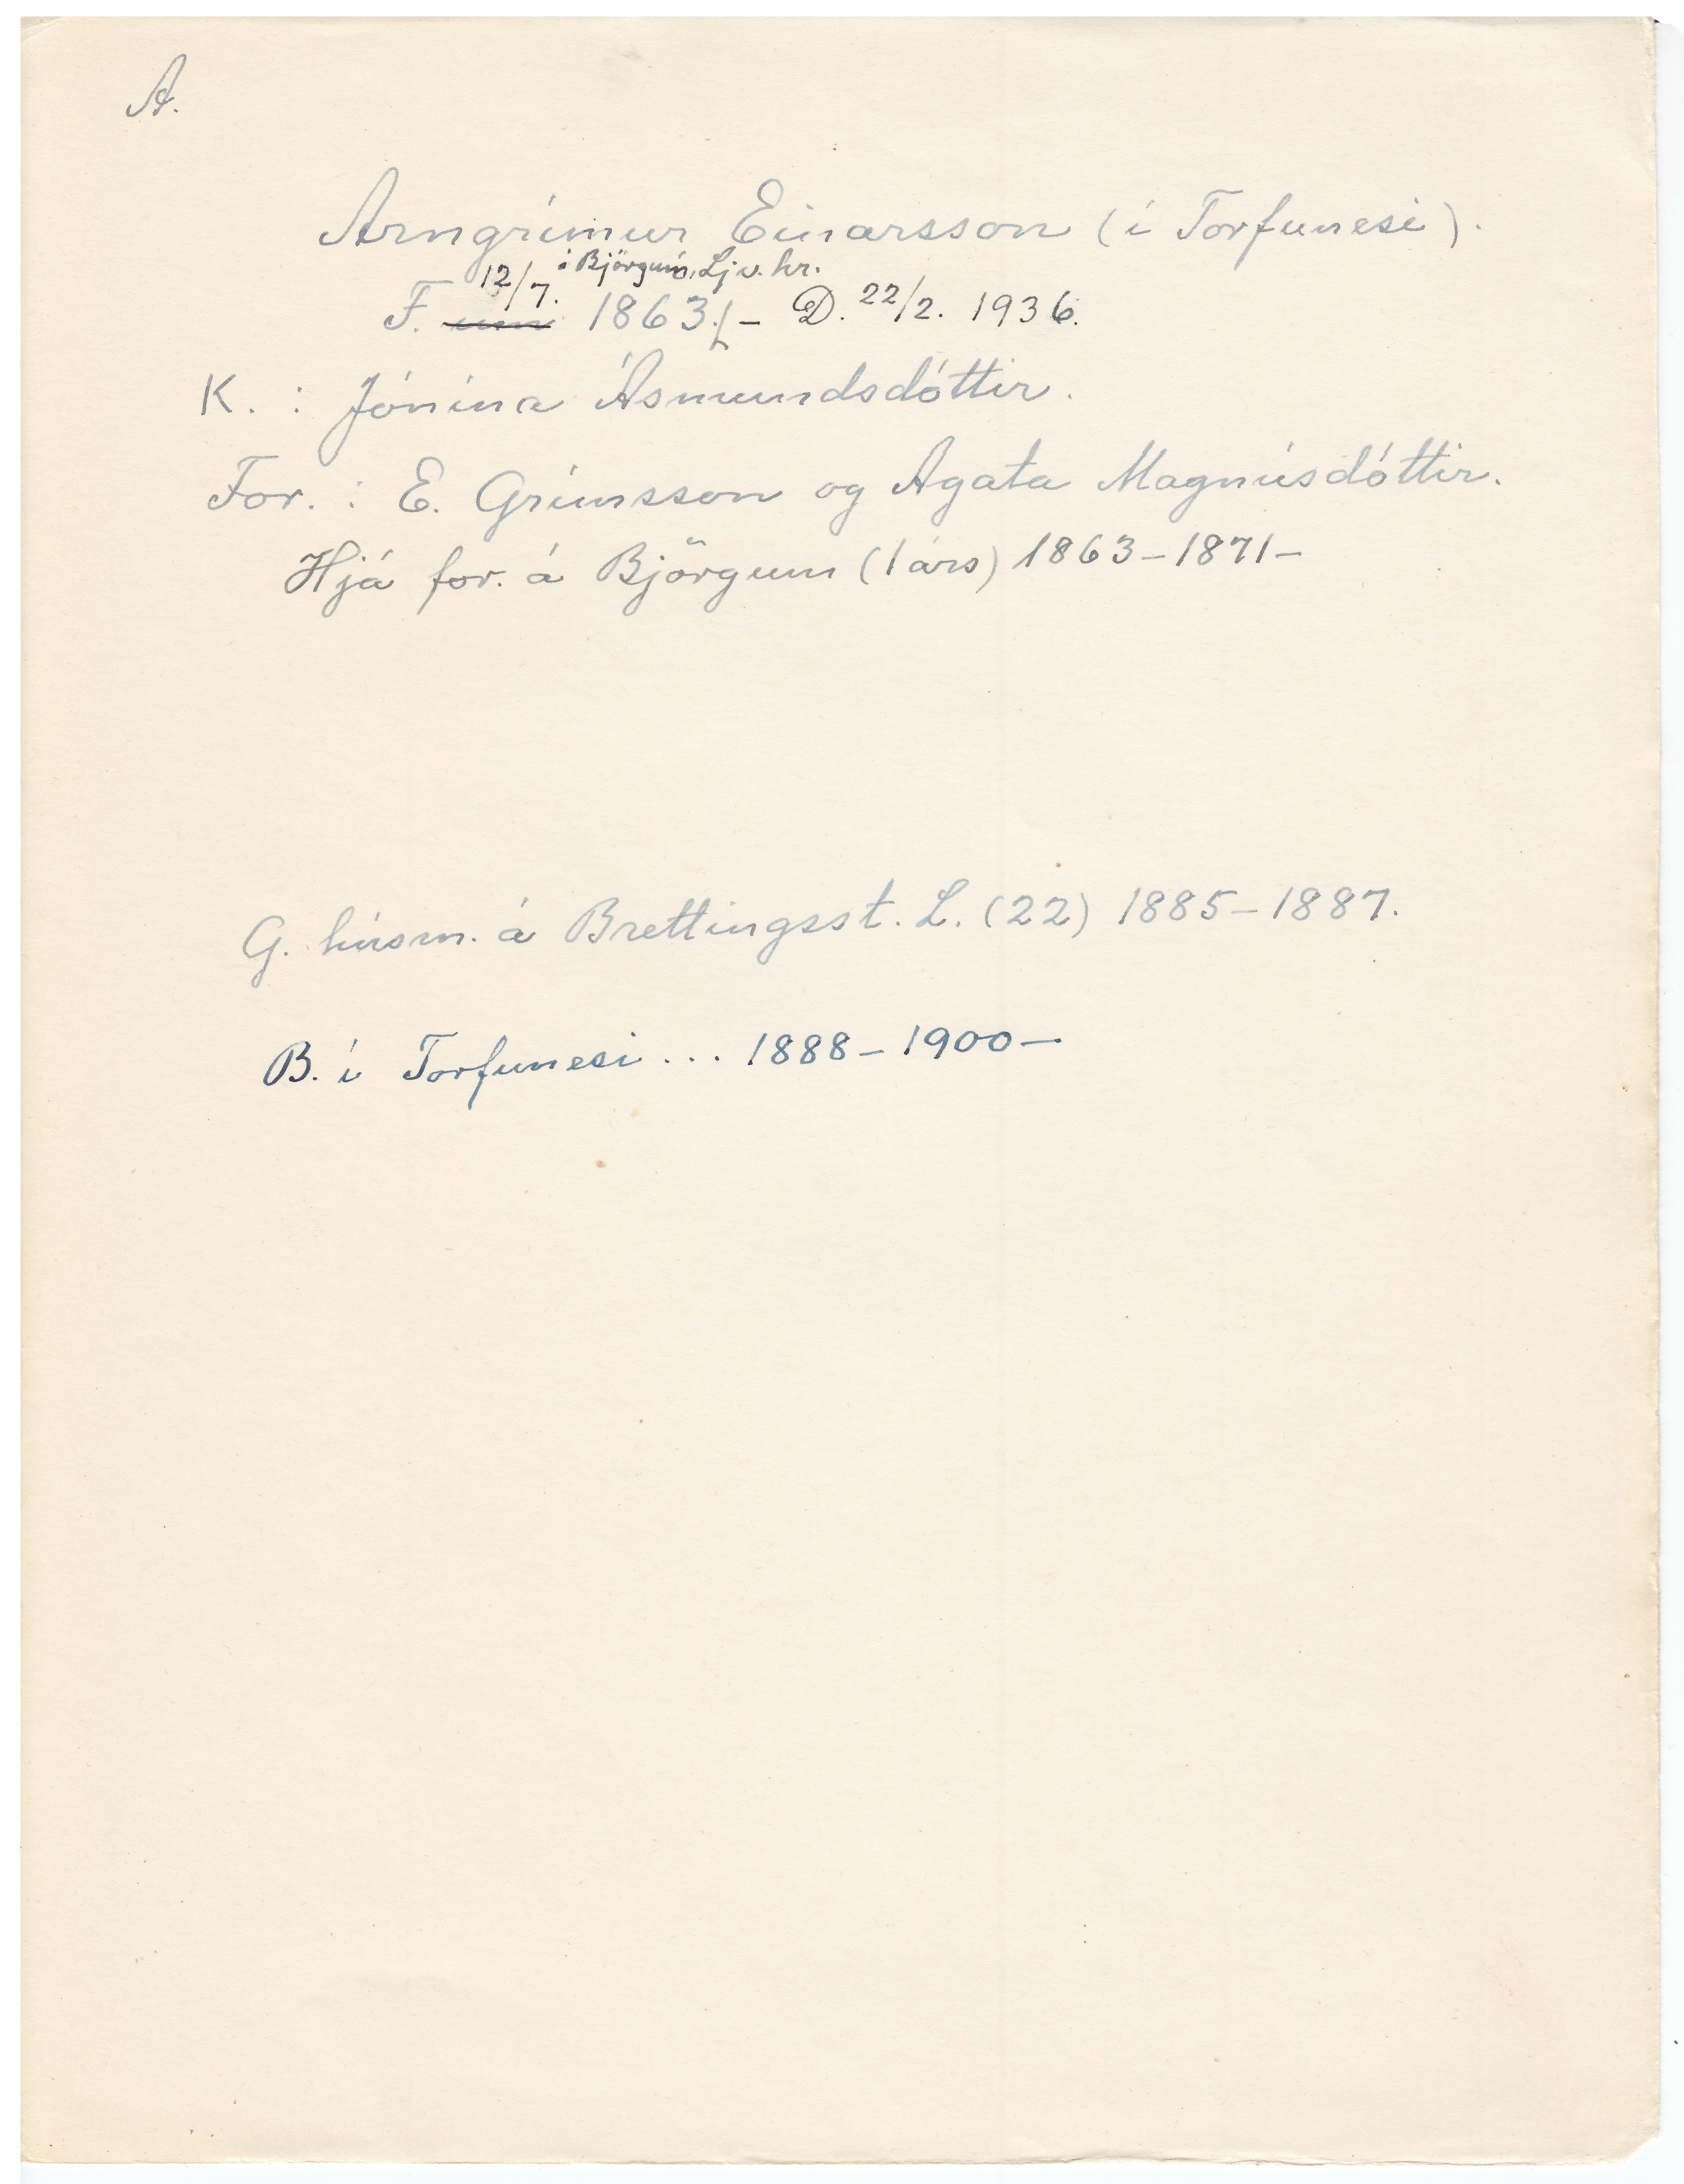 A.
Arngrímur Einarsson (í Torfunesi).
á Björgum, Ljv. hr.
F. 12/7. 1863. – D. 22/2. 1936.
K. : Jónína Ásmundsdóttir.
For. : E. Grímsson og Agata Magnúsdóttir.
Hjá for. á Björgum (1 árs) 1863–1871–
G. húsm. á Brettingsst. L. (22) 1885–1887.
B. í Torfunesi ... 1888–1900–